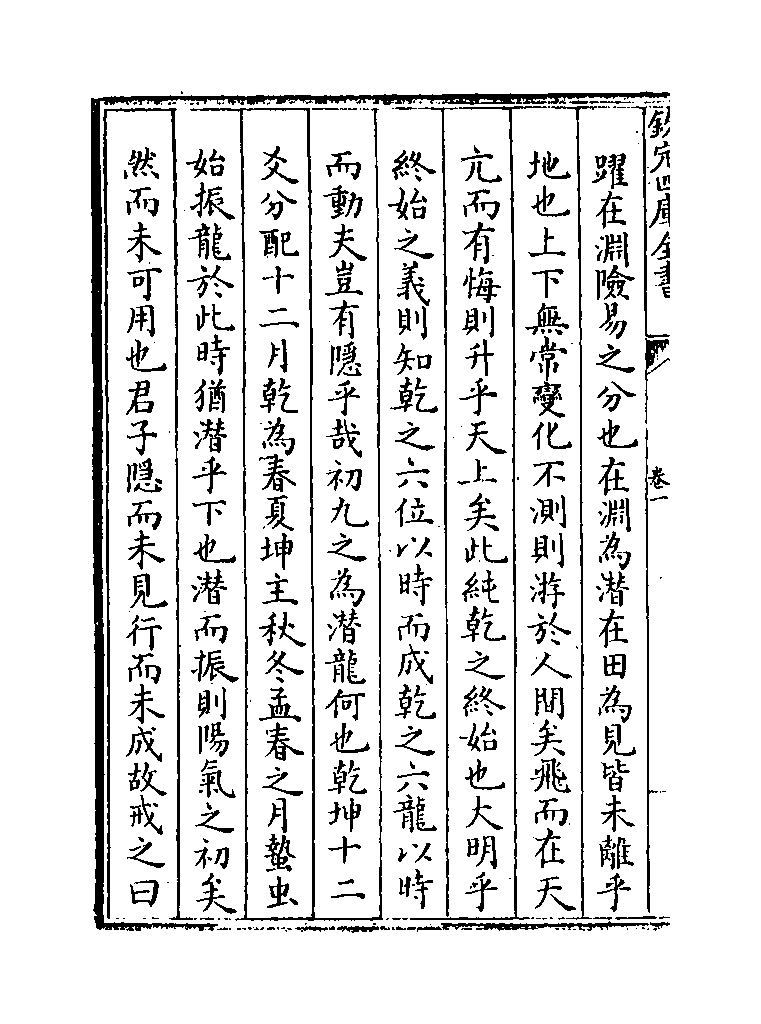 欽定四庫全書
卷一
躍在淵險易之分也在淵為潛在田為見皆未離乎
地也上下無常變化不測則游於人間矣飛而在天
亢而有悔則升乎天上矣此純乾之終始也大明乎
終始之義則知乾之六位以時而成乾之六龍以時
而動夫豈有隱乎哉初九之為潛龍何也乾坤十二
爻分配十二月乾為春夏坤主秋冬孟春之月蟄虫
始振龍於此時猶潛乎下也潛而振則陽氣之初矣
然而未可用也君子隱而未見行而未成故戒之曰